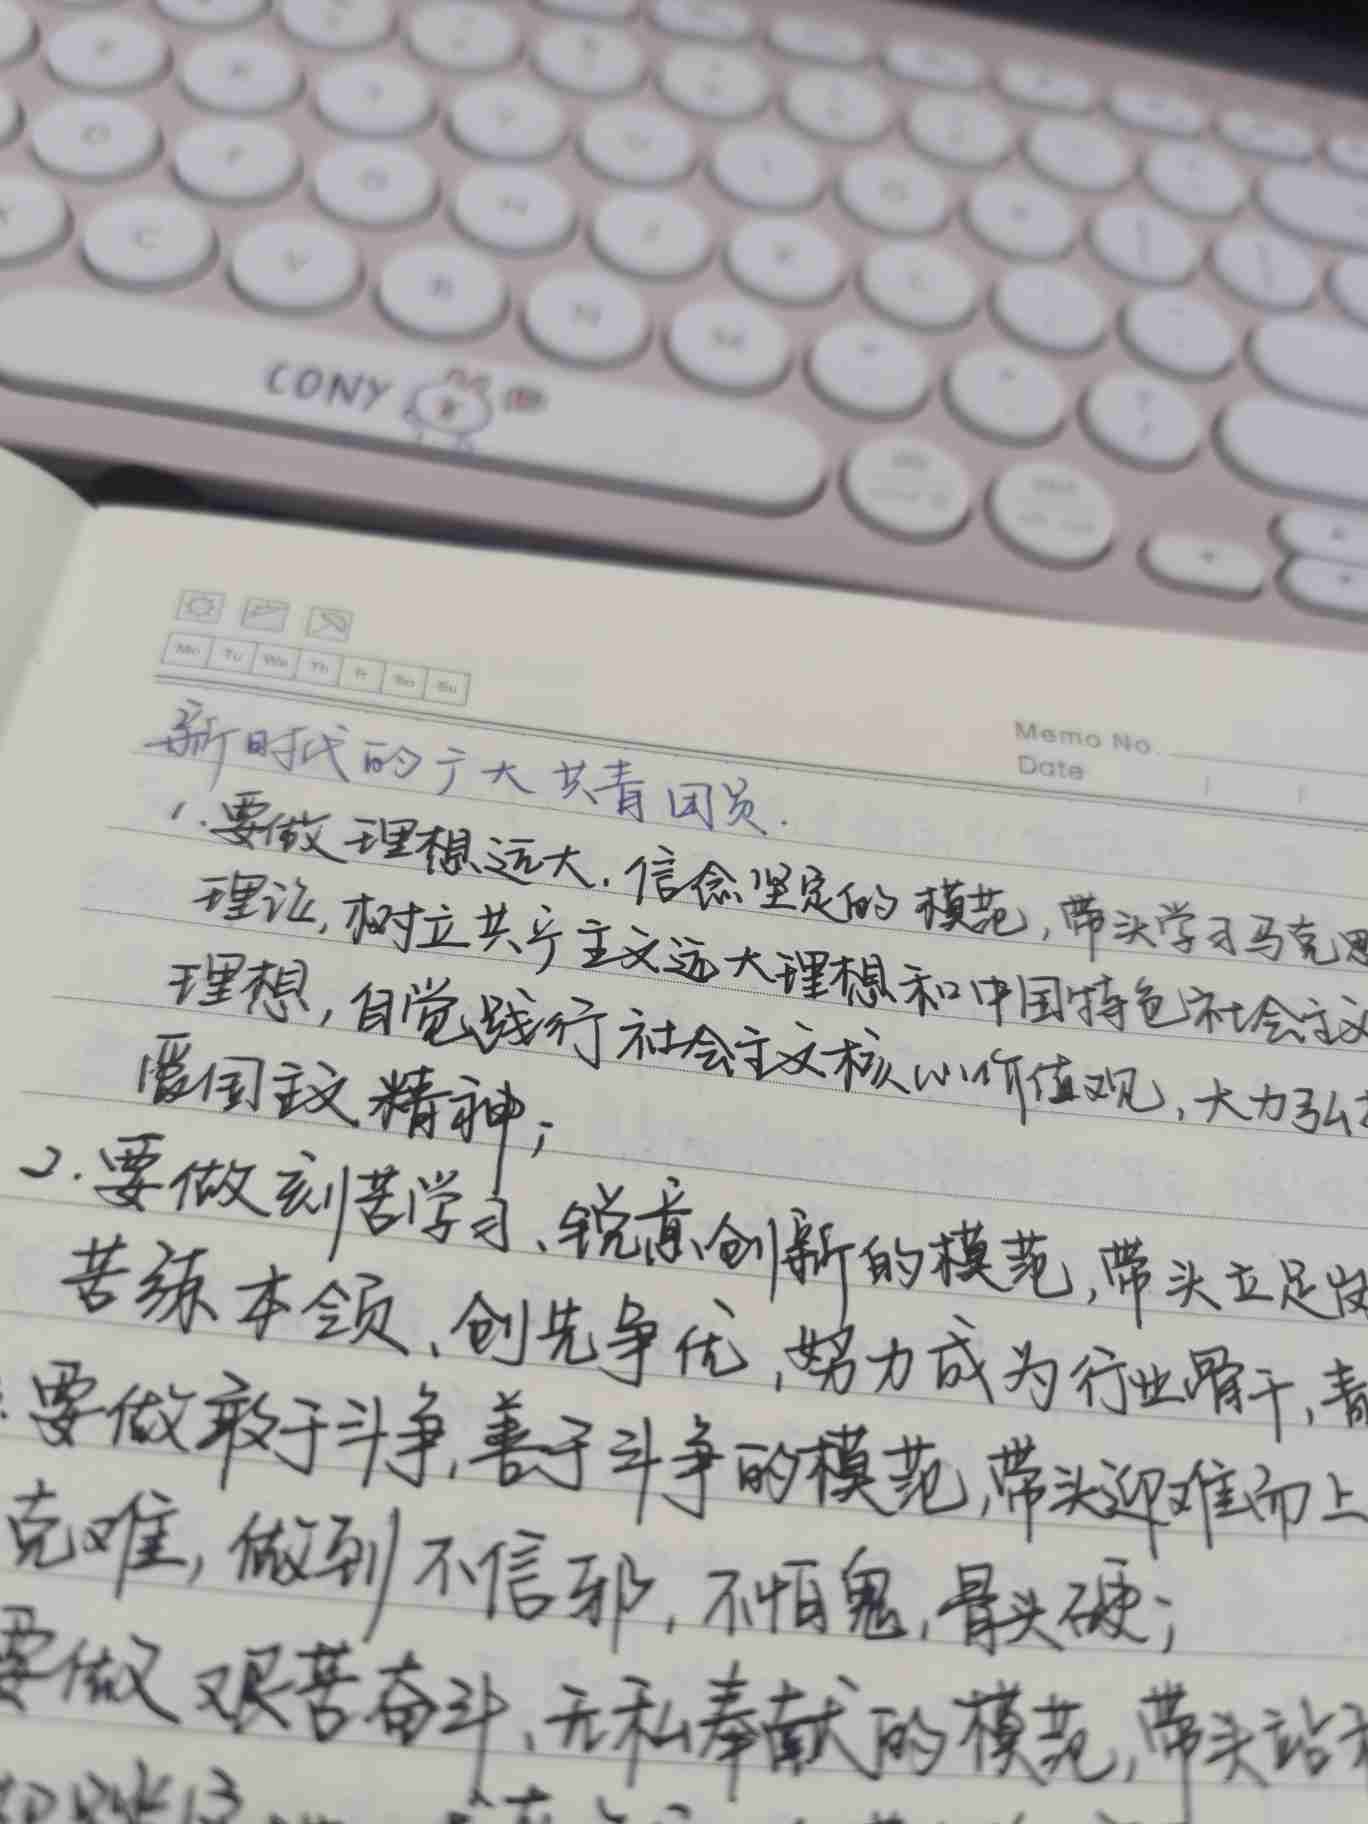 C
V
B
N
M
CONY
Mo Tu We Th Fr Sa Su
Memo No.
Date
新时代的广大共青团员.
1.要做理想远大、信念坚定的模范,带头学习马克思
理论,树立共产主义远大理想和中国特色社会主义
理想,自觉践行社会主义核心价值观,大力弘扬
爱国主义精神;
2.要做刻苦学习、锐意创新的模范,带头立足岗
苦练本领、创先争优,努力成为行业骨干,青
要做敢于斗争、善于斗争的模范,带头迎难而上
克难,做到不信邪,不怕鬼,骨头硬;
要做艰苦奋斗、无私奉献的模范,带头站